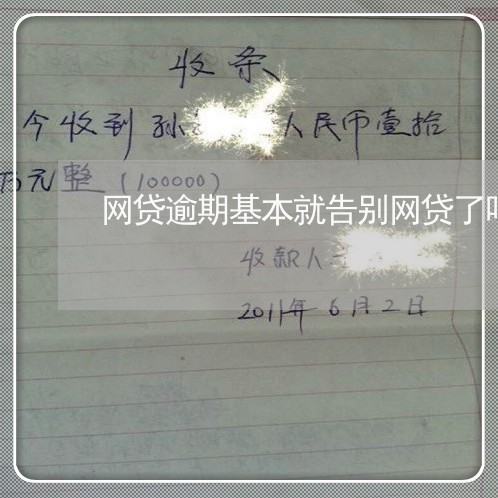 收条
今收到孙 人民币壹拾
万元整（100000）
网贷逾期基本就告别网贷了
收款人
2011年6月2日